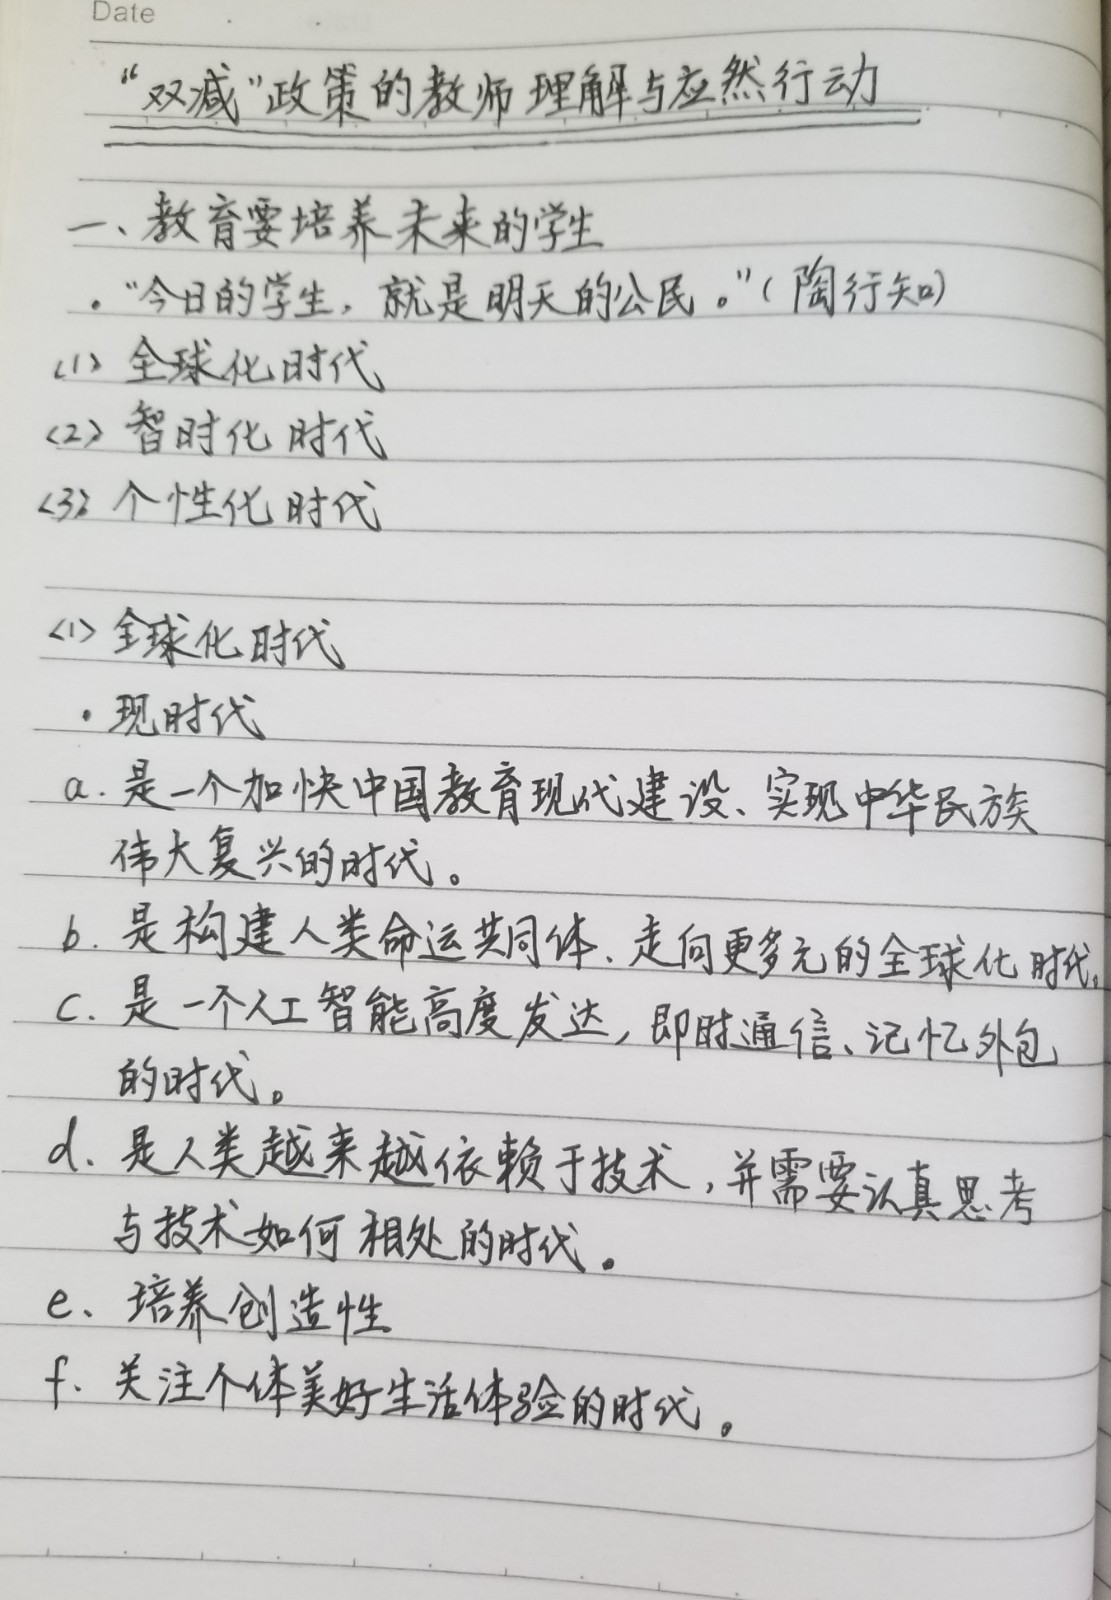 Date
“双减”政策的教师理解与应然行动
一、教育要培养未来的学生
·“今日的学生，就是明天的公民。”（陶行知）
<1> 全球化时代
<2> 智时化时代
<3> 个性化时代
<1> 全球化时代
·现时代
a. 是一个加快中国教育现代建设、实现中华民族
伟大复兴的时代。
b. 是构建人类命运共同体、走向更多元的全球化时代。
c. 是一个人工智能高度发达，即时通信、记忆外包
的时代。
d、是人类越来越依赖于技术，并需要认真思考
与技术如何相处的时代。
e、培养创造性
f. 关注个体美好生活体验的时代。